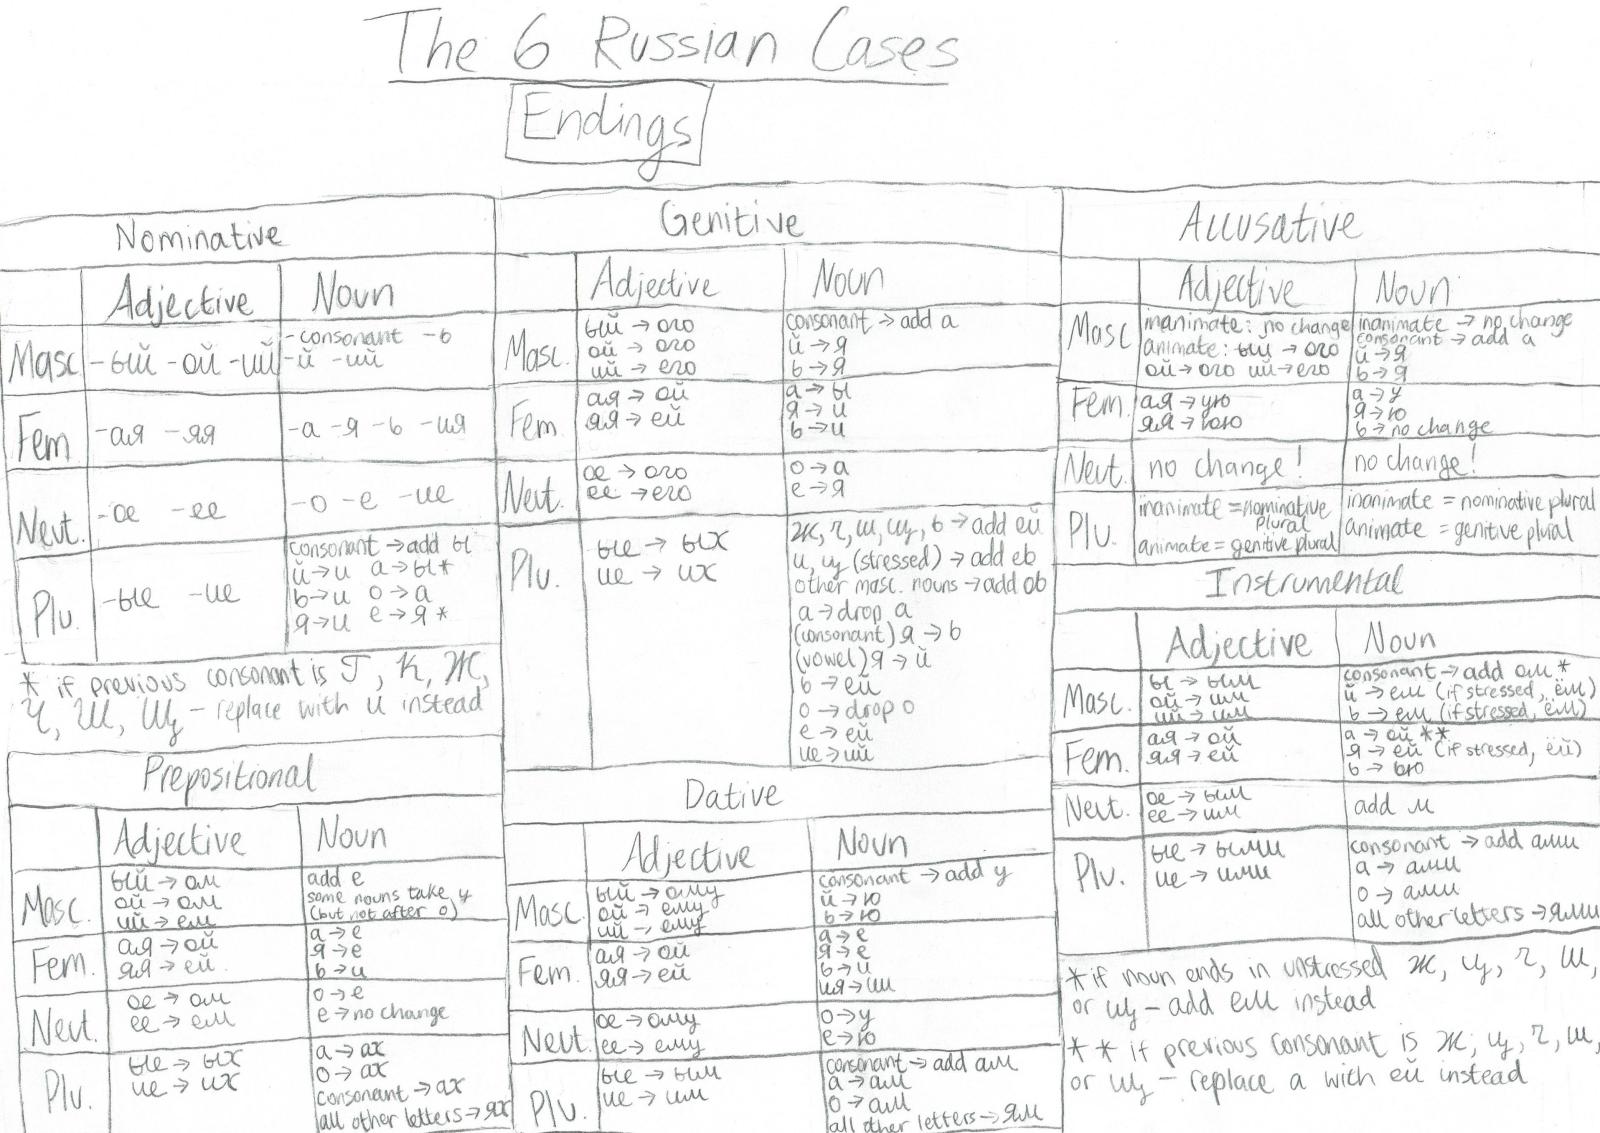 The 6 Russian Cases
Endings
Nominative
Adjective Noun
Masc -ый -ой -ий -consonant -ь
-й -ий
Fem -ая -яя -а -я -ь -ия
Neut. -ое -ее -о -е -ие
Plu. -ые -ие consonant → add ы
й→и а→ы*
ь→и о→а
я→и е→я*
* if previous consonant is Г, К, Ж,
Ч, Ш, Щ - replace with и instead
Genitive
Adjective Noun
Masc. ый → ого consonant → add а
ой → ого й → я
ий → его ь → я
Fem. ая → ой а → ы
яя → ей я → и
ь → и
Neut. ое → ого о → а
ее → его е → я
Plu. ые → ых ж, ч, ш, щ, ь → add ей
ие → их ц, щ (stressed) → add еь
other masc. nouns → add оь
а → drop а
(consonant) я → ь
(vowel) я → й
ь → ей
о → drop о
е → ей
ие → ий
Accusative
Adjective Noun
Masc inanimate: no change inanimate → no change
animate: ый → ого consonant → add а
ой → ого ий → его й → я
ь → я
Fem. ая → ую а → у
яя → юю я → ю
ь → no change
Neut. no change! no change!
Plu. inanimate = nominative plural inanimate = nominative plural
animate = genitive plural animate = genitive plural
Instrumental
Adjective Noun
Masc. ы → ым consonant → add ом *
ой → им й → ем (if stressed, ём)
ий → им ь → ем (if stressed, ём)
Fem. ая → ой а → ой **
яя → ей я → ей (if stressed, ёй)
ь → ью
Neut. ое → ым add м
ее → им
Plu. ые → ыми consonant → add ами
ие → ими а → ами
о → ами
all other letters → ями
* if noun ends in unstressed ж, ц, ч, ш,
or щ - add ем instead
** if previous consonant is ж, ц, ч, ш,
or щ - replace а with ей instead
Prepositional
Adjective Noun
Masc. ый → ом add е
ой → ом some nouns take у
ий → ем (but not after о)
Fem. ая → ой а → е
яя → ей я → е
ь → и
Neut. ое → ом о → е
ее → ем е → no change
Plu. ые → ых а → ах
ие → их о → ах
consonant → ах
all other letters → ях
Dative
Adjective Noun
Masc. ый → ому consonant → add у
ой → ему й → ю
ий → ему ь → ю
Fem. ая → ой а → е
яя → ей я → е
ь → и
ия → ии
Neut. ое → ому о → у
ее → ему е → ю
Plu. ые → ым consonant → add ам
ие → им а → ам
о → ам
all other letters → ям